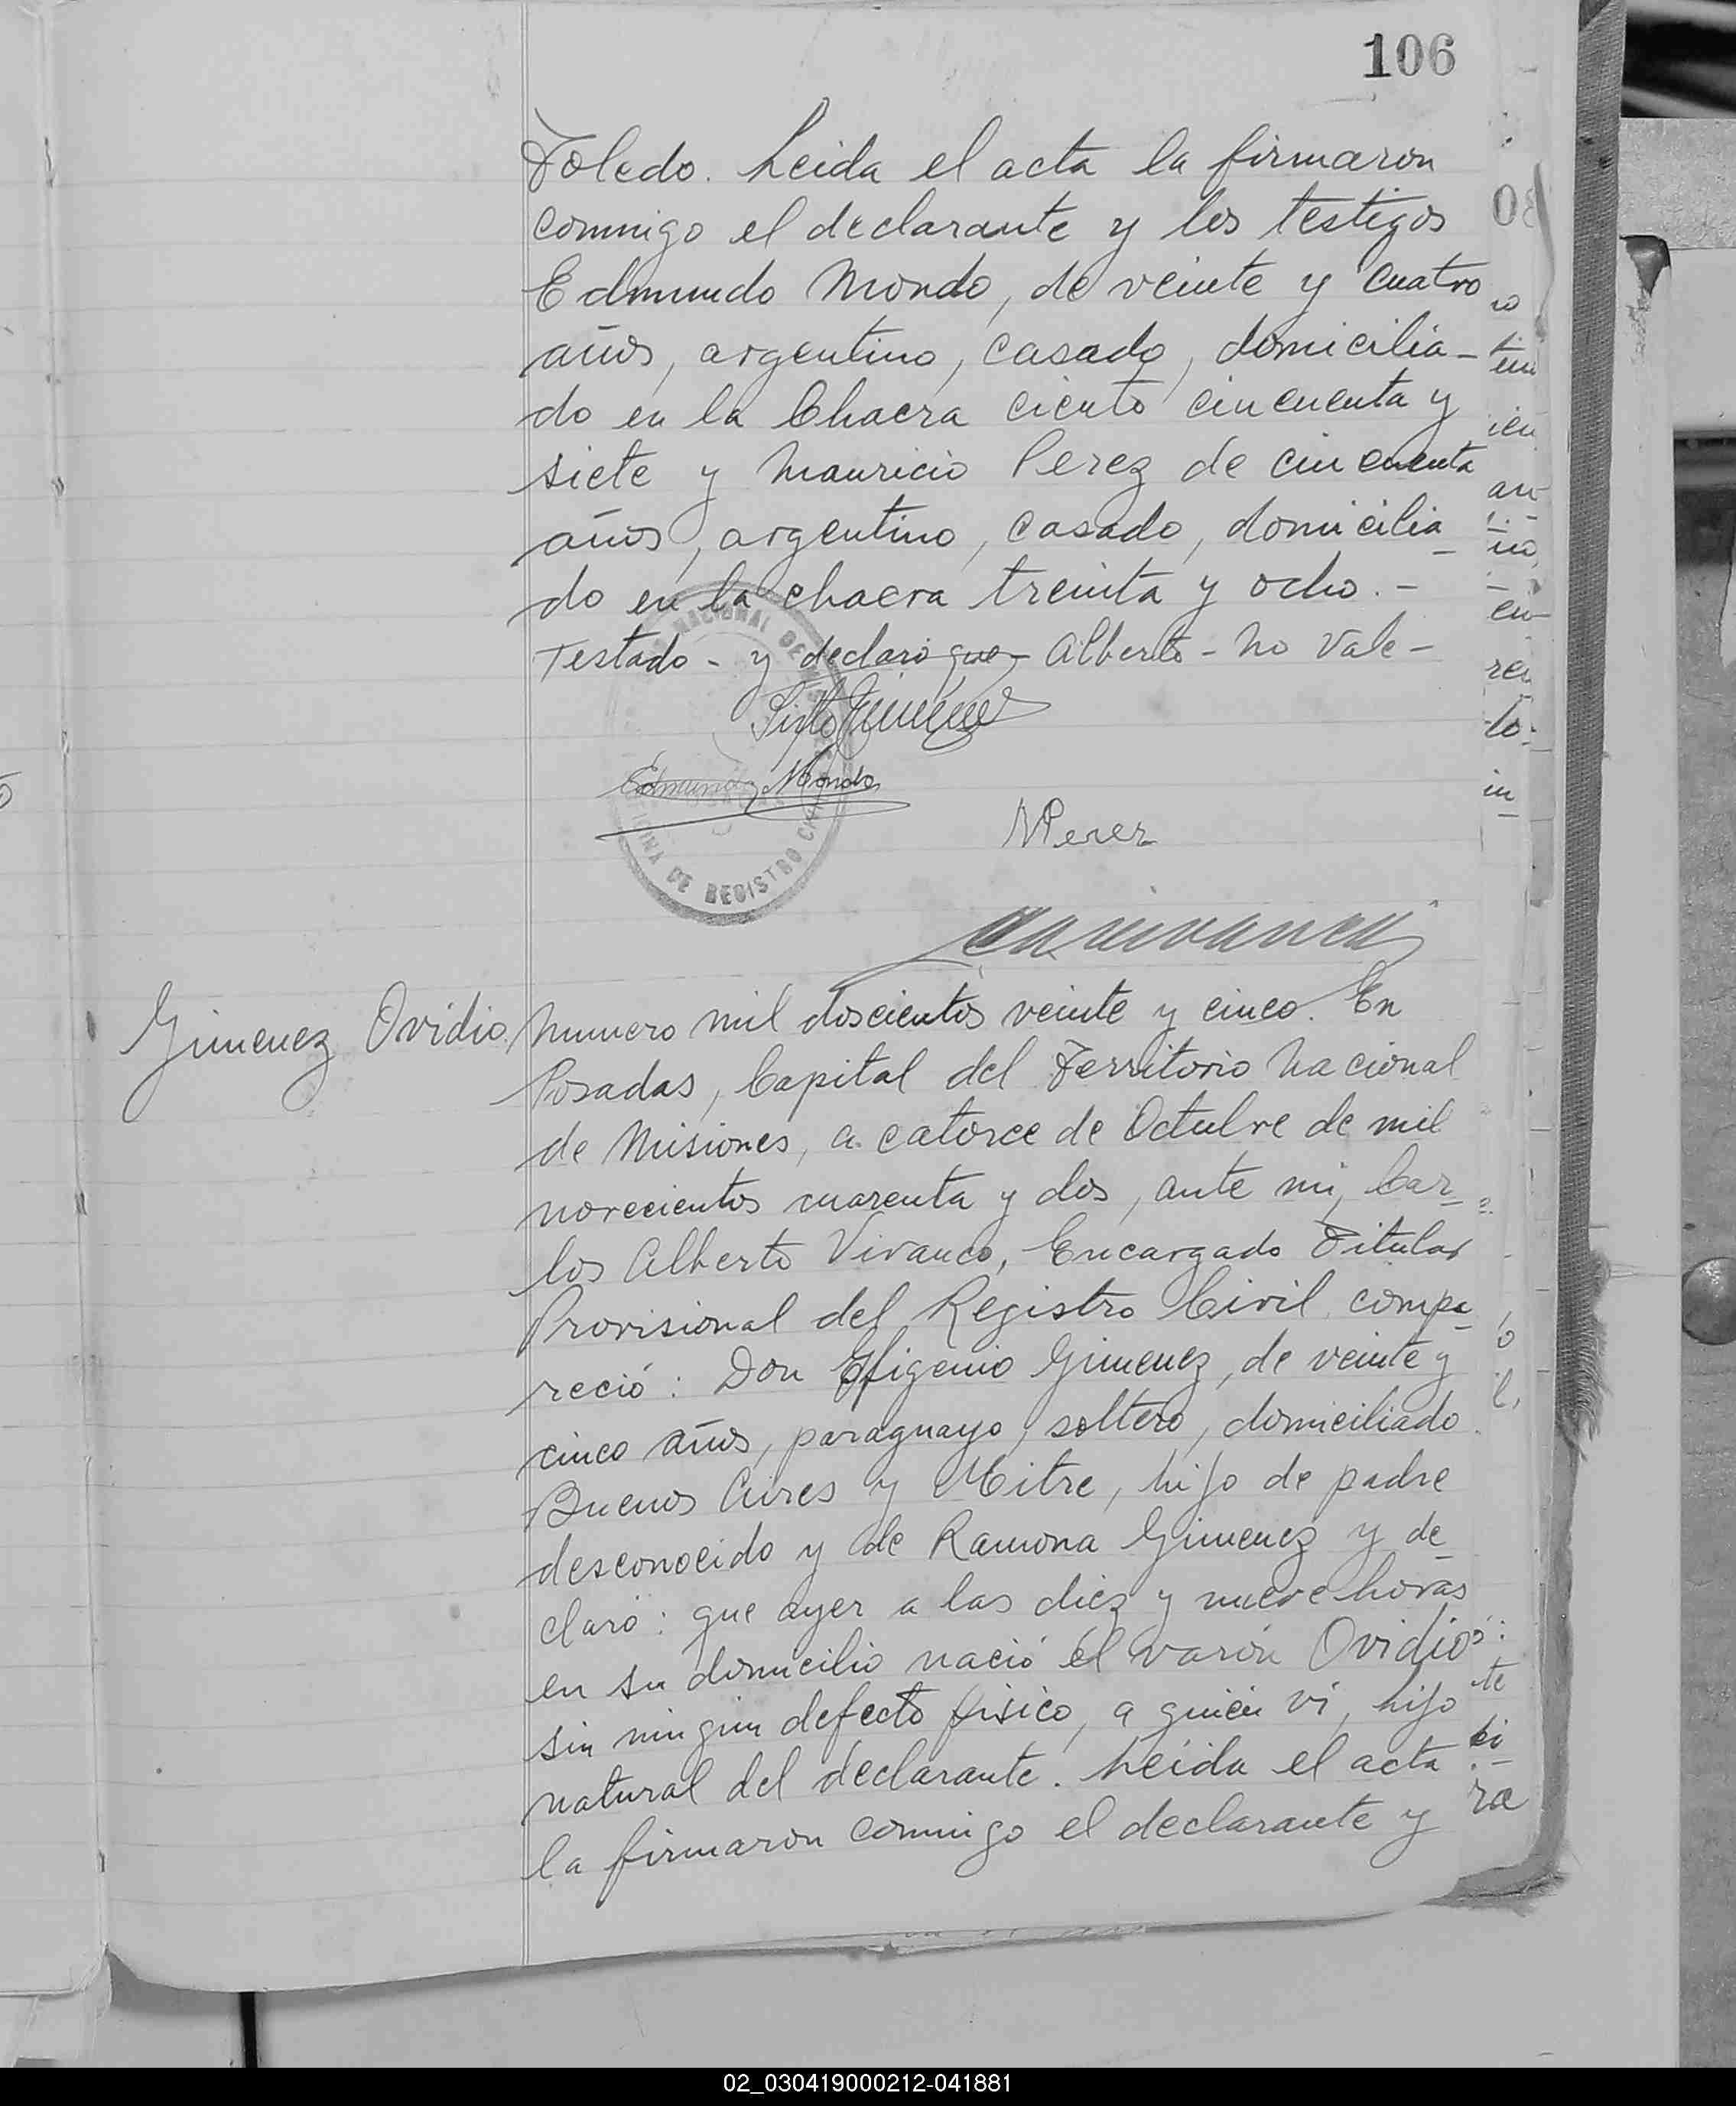 106
Toledo. Leida el acta la firmaron
conmigo el declarante y los testigos
Edmundo Mondo, de veinte y cuatro
años, argentino, casado, domicilia-
do en la Chacra ciento cincuenta y
siete y Mauricio Perez de cincuenta
años, argentino, casado, domicilia-
do en la chacra treinta y ocho.-
Testado - y declaró que - Alberto - no vale -
Sixto Gimenez
Edmundo Mondo
MPerez
OFICINA DE REGISTRO
Gimenez Ovidio.
Numero mil doscientos veinte y cinco. En
Posadas, Capital del Territorio Nacional
de Misiones, a catorce de Octubre de mil
novecientos cuarenta y dos, ante mi, Car-
los Alberto Vivanco, Encargado Titular
Provisional del Registro Civil, compa-
reció: Don Efigenio Gimenez, de veinte y
cinco años, paraguayo, soltero, domiciliado
Buenos Aires y Mitre, hijo de padre
desconocido y de Ramona Gimenez y de-
claró: que ayer a las diez y nueve horas
en su domicilio nació el varón Ovidio
sin ningun defecto fisico, a quien vi, hijo
natural del declarante. Leida el acta
la firmaron conmigo el declarante y
02_030419000212-041881